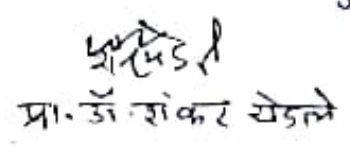 प्रा. डॉ. शंकर येडले